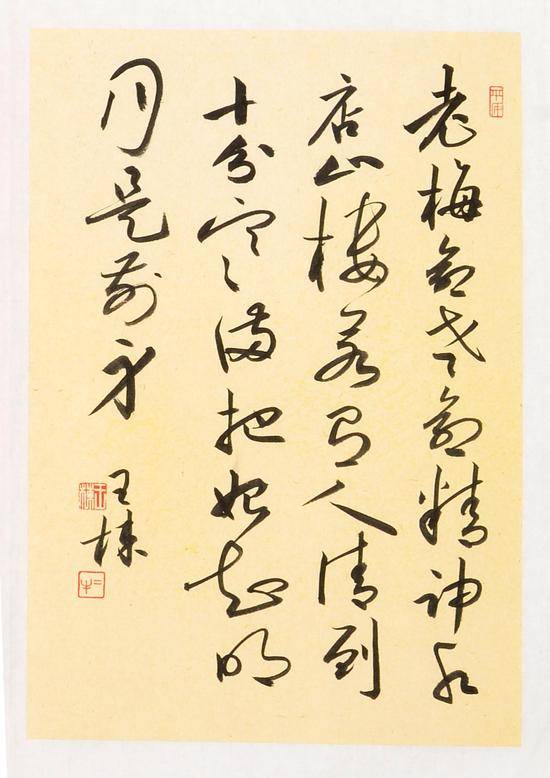 老梅愈老愈精神水
店山樓若有人清到
十分寒滿把始知明
月是前身
王